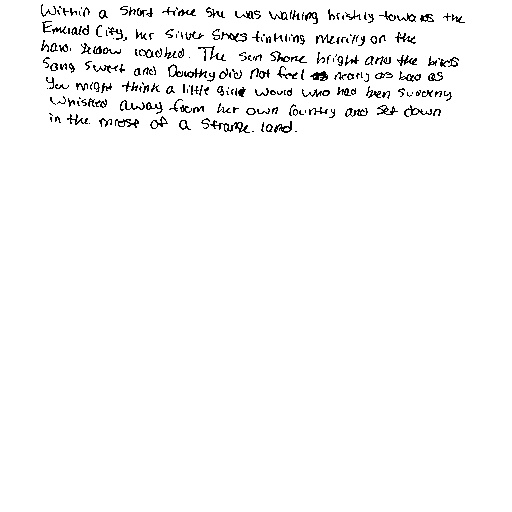 Within a short time she was walking briskly towards the
Emerald City, her Silver Shoes tinkling merrily on the
hard yellow roadbed. The sun shone bright and the birds
sang sweet and Dorothy did not feel nearly as bad as
you might think a little girl would who had been suddenly
whisked away from her own country and set down
in the midst of a strange land.